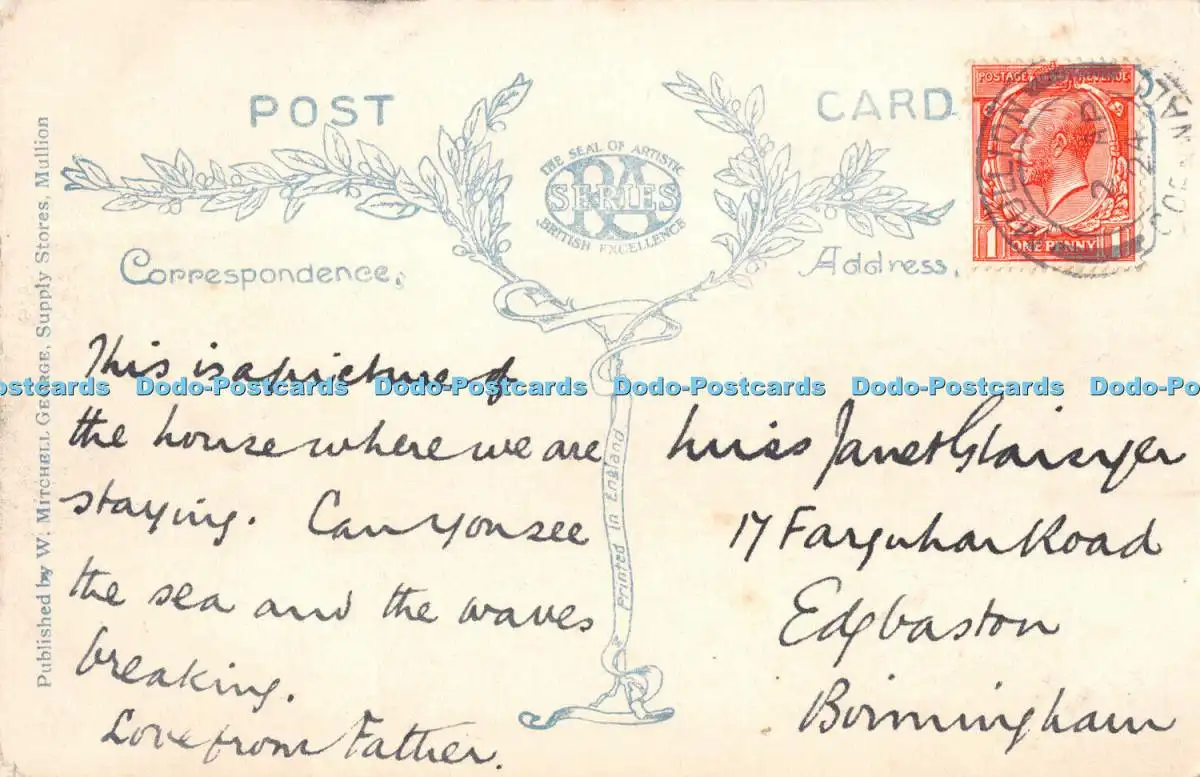 POST CARD
THE SEAL OF ARTISTIC
RA
SERIES
BRITISH EXCELLENCE
Correspondence.
Address.
POSTAGE REVENUE
ONE PENNY
1 1
MULLION
CORNWALL
2 AP
24
Published by W. Mitchell George, Supply Stores, Mullion
Printed in England
This is a picture of
the house where we are
staying. Can you see
the sea and the waves
breaking.
Love from Father.
Miss Janet
17 Farquhar Road
Edgbaston
Birmingham
Dodo-Postcards Dodo-Postcards Dodo-Postcards Dodo-Postcards